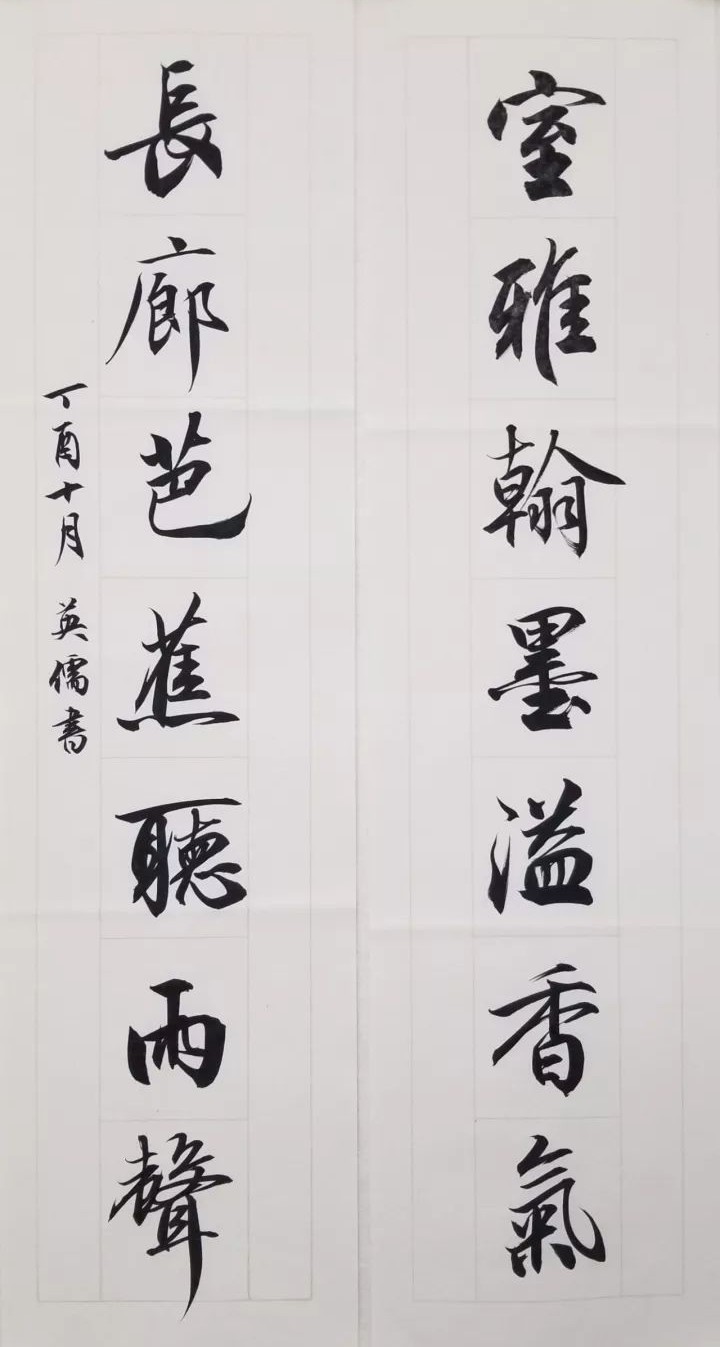 室雅翰墨溢香氣
長廊芭蕉聽雨聲
丁酉十月 英儒書